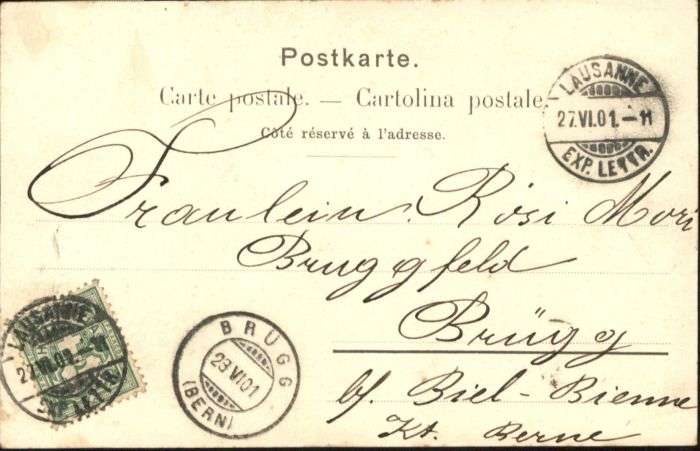 Postkarte.
Carte postale. — Cartolina postale.
Côté réservé à l'adresse.
LAUSANNE
27.VI.01.-11
EXP. LETTR.
Fräulein Rösi Mori
Bruggfeld
Brügg
b/ Biel-Bienne
Kt. Berne
LAUSANNE
27.VI.01.-11
LETTR.
BRÜGG
28 VI 01
(BERN)